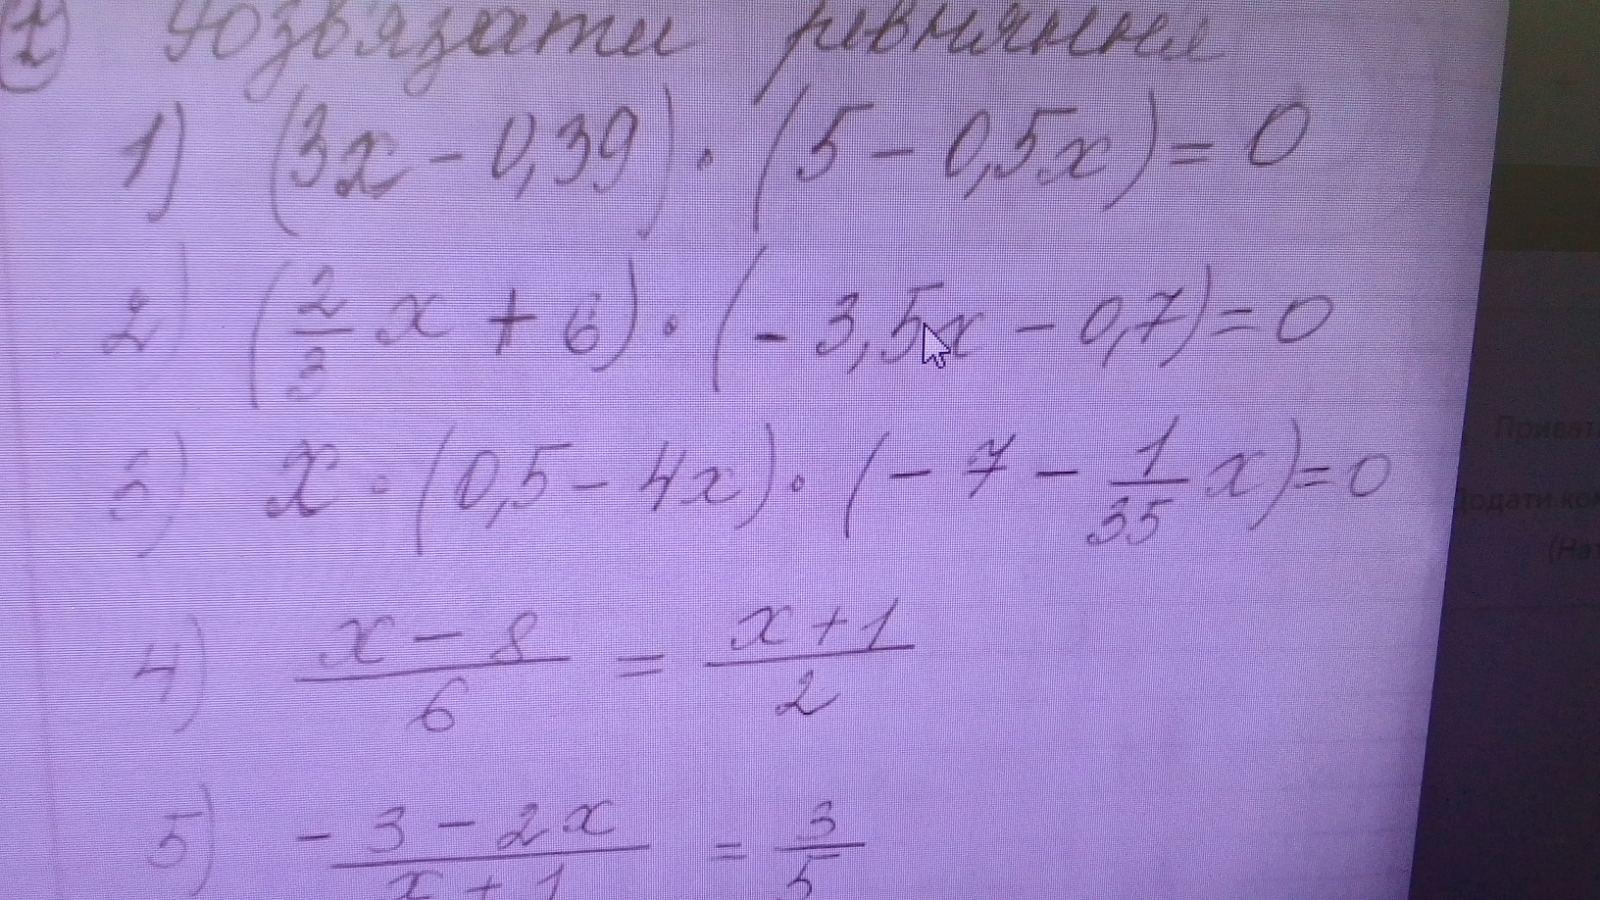 1 Розв'язати рівняння
1) (3x - 0,39) · (5 - 0,5x) = 0
2) (2/3 x + 6) · (- 3,5x - 0,7) = 0
3) x · (0,5 - 4x) · (- 7 - 1/35 x) = 0
4) x - 8 / 6 = x + 1 / 2
5) - 3 - 2x / x + 1 = 3 / 5
Приват
Додати ко
(На